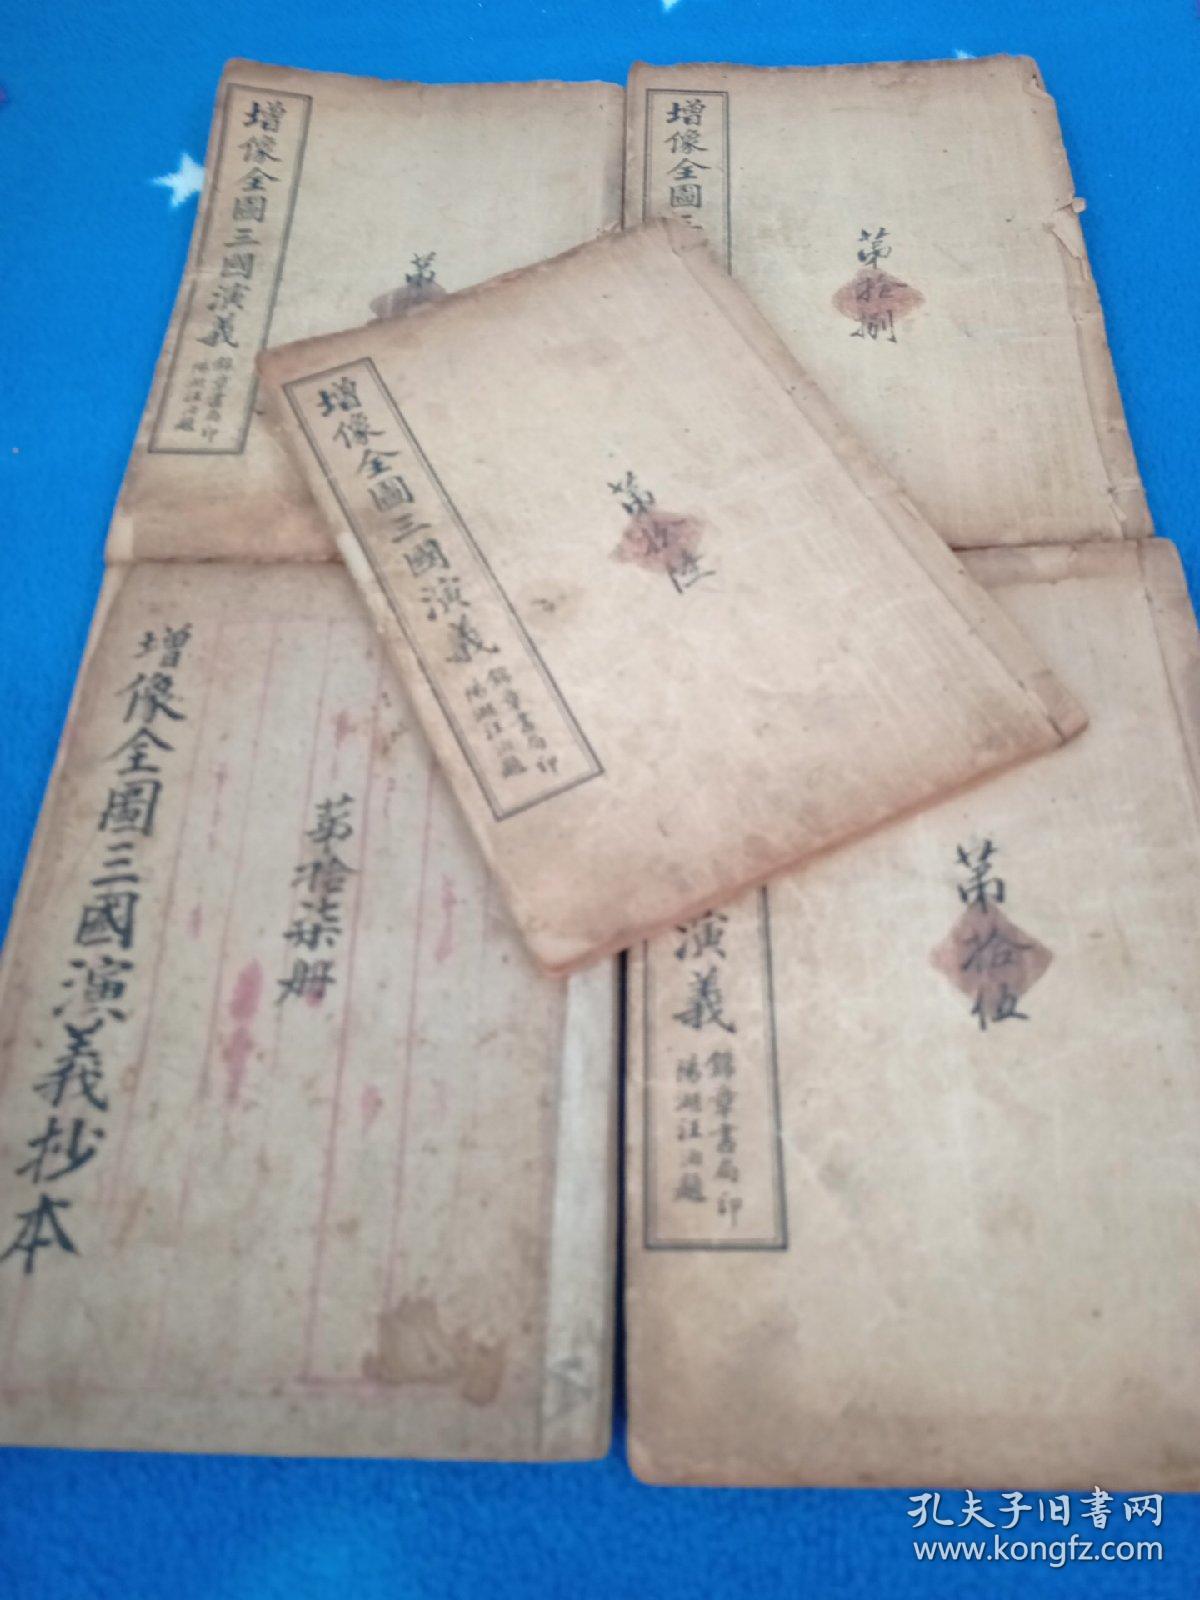 增像全圖三國演義
錦章書局印
陽湖汪洵題
第
增像全圖三
第拾捌
增像全圖三國演義
錦章書局印
陽湖汪洵題
第拾陸
增像全圖三國演義抄本
第拾柒册
演義
錦章書局印
陽湖汪洵題
第拾伍
孔夫子旧书网
www.kongfz.com